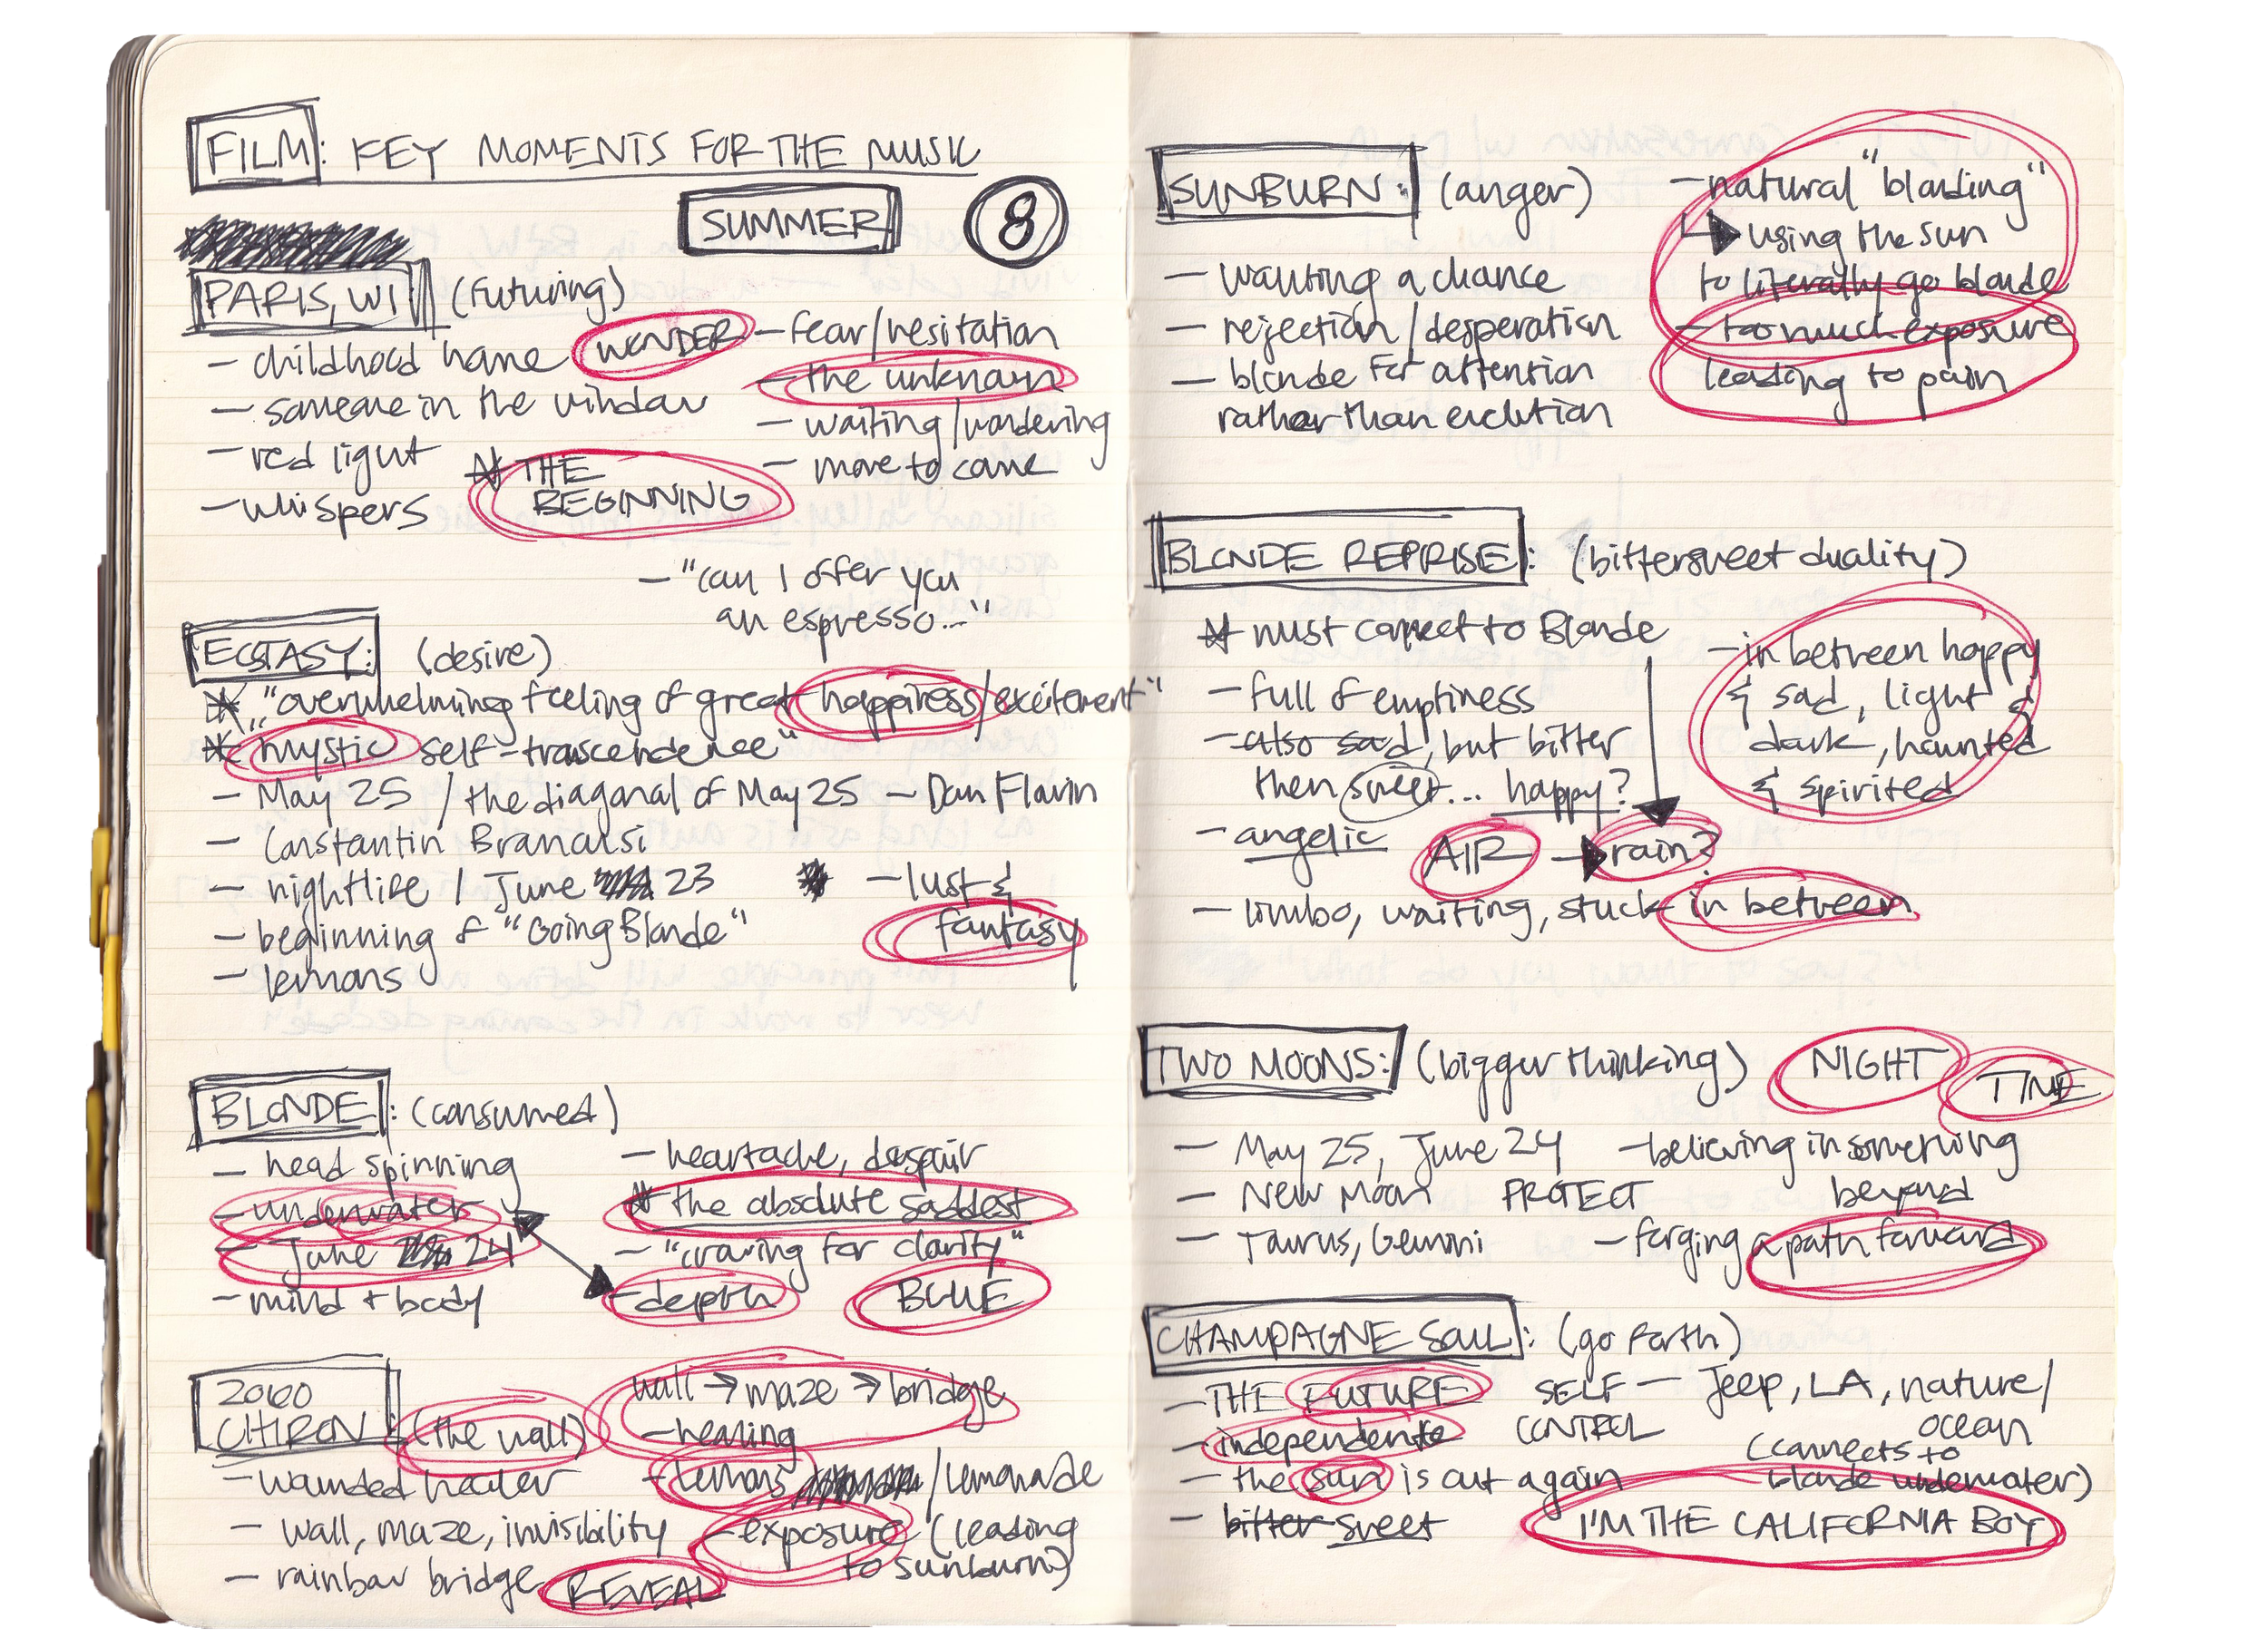 FILM: KEY MOMENTS FOR THE MUSIC
SUMMER 8
PARIS, WI (futuring)
- childhood home
WONDER
- someone in the window
- red light
- whispers
* THE
BEGINNING
- fear/hesitation
- the unknown
- waiting/wondering
- more to come
- "can I offer you
an espresso..."
ECSTASY: (desire)
* "overwhelming feeling of great happiness/excitement"
* "mystic self-transcendence"
- May 25 / the diagonal of May 25 - Dan Flavin
- Constantin Brancusi
- nightlife / June 23
- beginning of "Going Blonde"
- lemons
* - lust &
fantasy
BLONDE: (consumed)
- head spinning
- underwater
- June 24
- mind + body
- heartache, despair
* the absolute saddest
- "craving for clarity"
- depth
BLUE
2060
CHIRON: (the wall)
- wounded healer
- wall, maze, invisibility
- rainbow bridge
REVEAL
wall → maze → bridge
- healing
- lemons / lemonade
- exposure (leading
to sunburn)
SUNBURN: (anger)
- wanting a chance
- rejection / desperation
- blonde for attention
rather than evolution
- natural "blonding"
using the sun
to literally go blonde
- too much exposure
leading to pain
BLONDE REPRISE: (bittersweet duality)
* must connect to Blonde
- full of emptiness
- also sad, but bitter
then sweet... happy?
- angelic
AIR → rain?
- limbo, waiting, stuck in between
- in between happy
& sad, light &
dark, haunted
& spirited
TWO MOONS: (bigger thinking)
NIGHT
TIME
- May 25, June 24
- New Moon PROTECT
- Taurus, Gemini
- believing in something
beyond
- forging a path forward
CHAMPAGNE SOUL: (go forth)
- THE FUTURE
- independent
- the sun is out again
- bitter sweet
SELF
CONTROL
- Jeep, LA, nature/
ocean
(connects to
blonde underwater)
I'M THE CALIFORNIA BOY